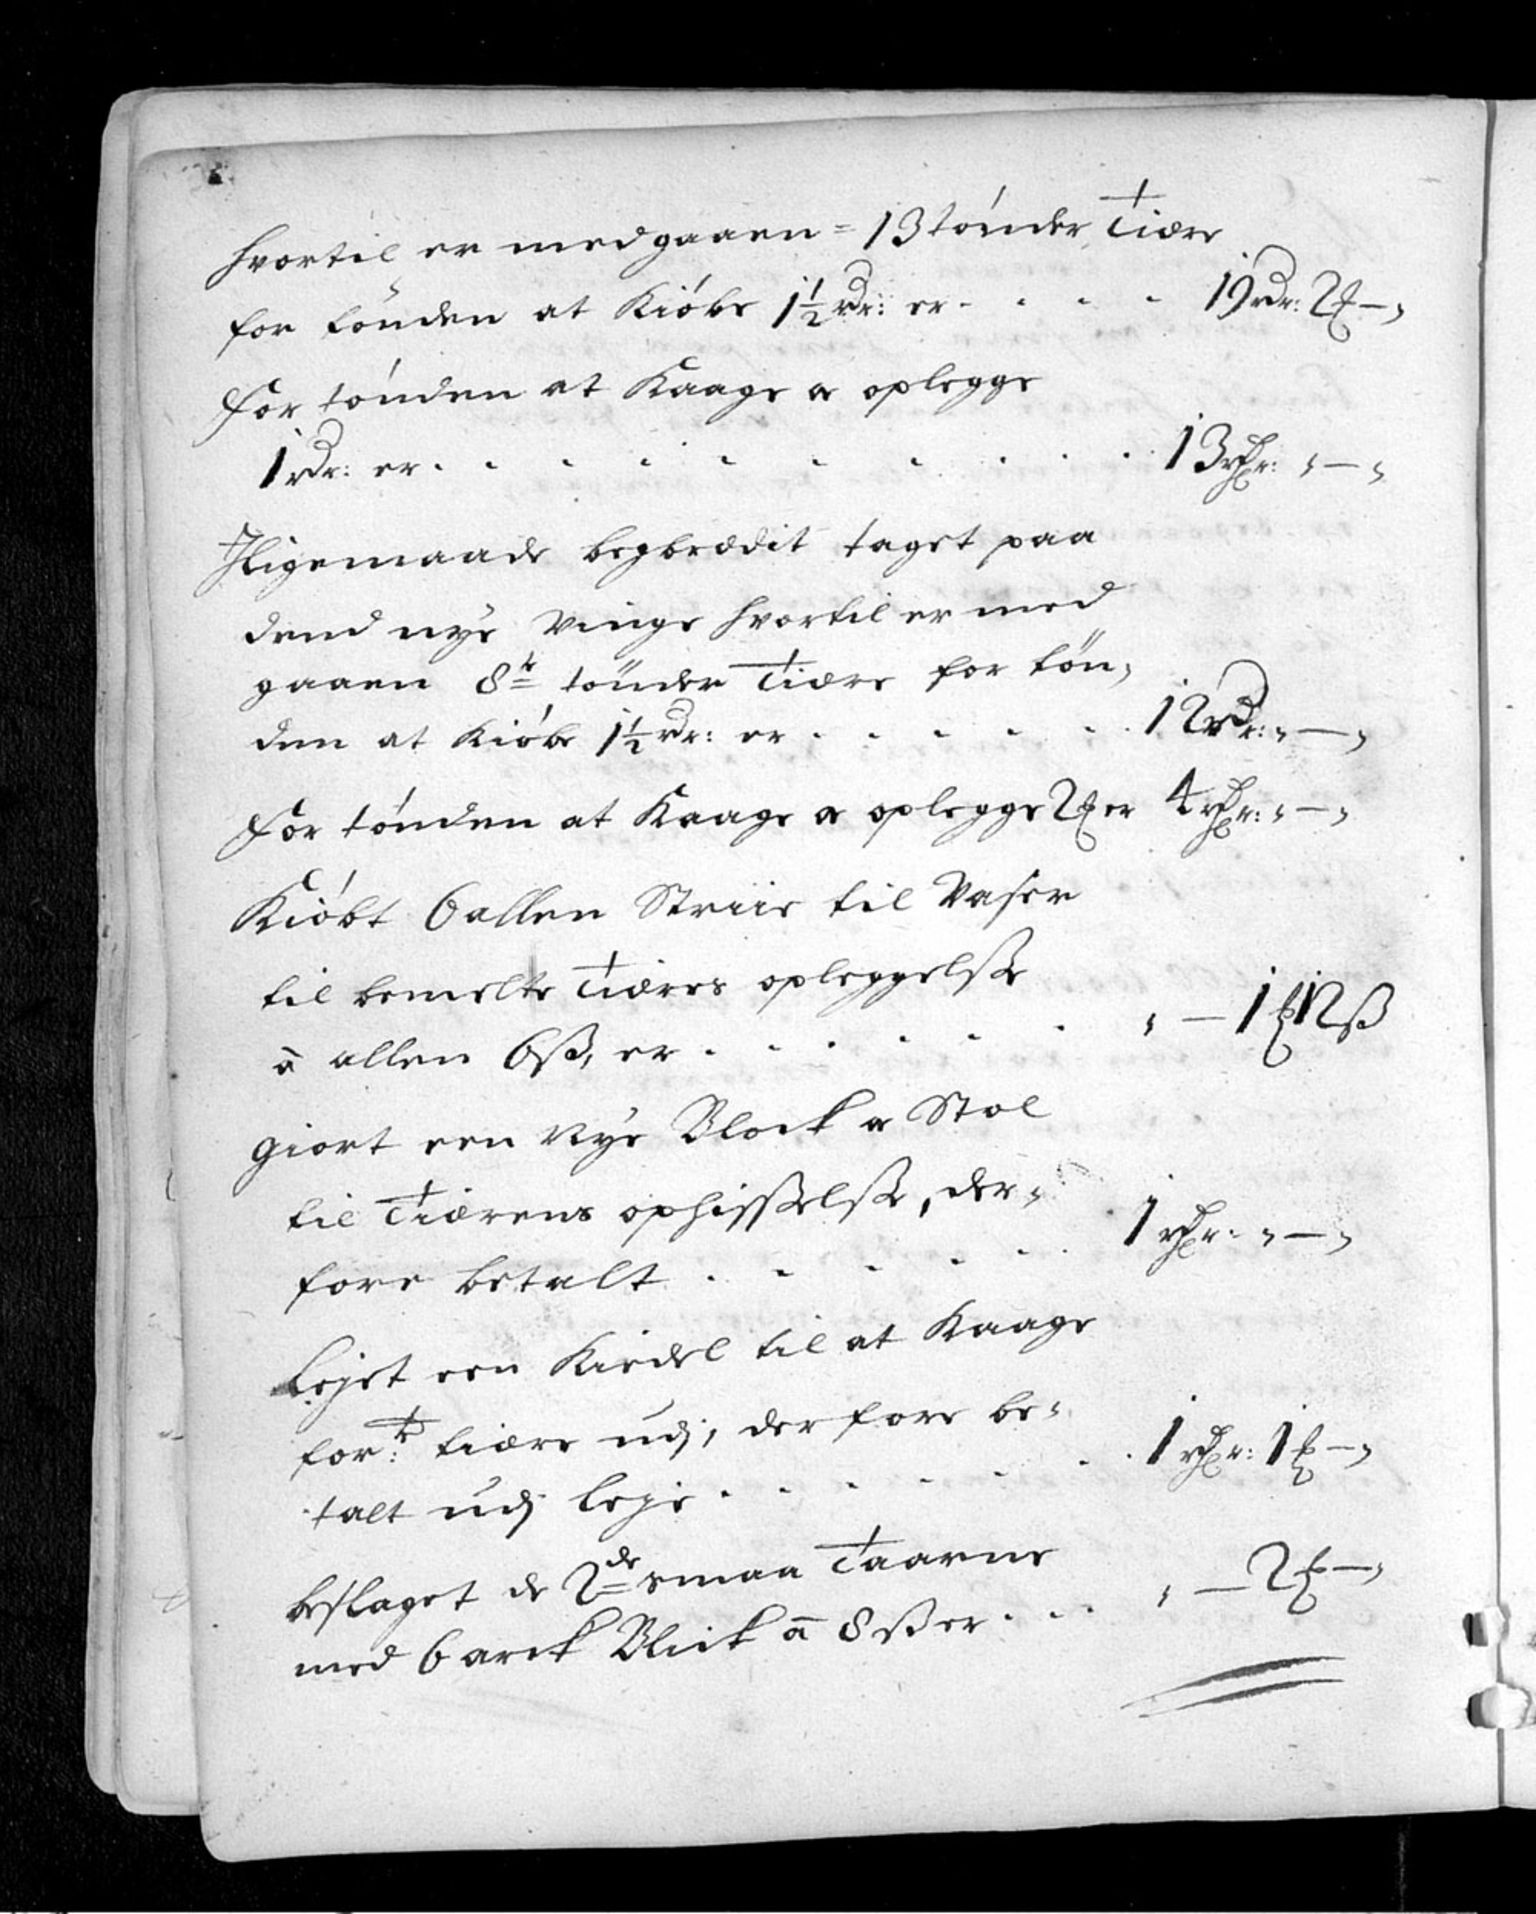 hvortil er medgaaen = 13 tónder Tiære
for tönden at Kióbe 1½ rdr: er - - - - 19 rdr: 2 ℳ — „
For tónden at Kaage & oplegge
1 rdr: er - - - - - - - - - 13 rdr: „ — „
Iligemaade begbrædit taget paa
dend nÿe Vinge hvortil er med
gaaen 8te tönder Tiære for tön„
den at Kióbe 1½ rdr: er - - - - - 12 rdr: „ — „
For tónden at Kaage & oplegge 2 ℳ er 4 rdr: „ — „
Kióbt 6 allen Striie til Vaser
til bemelte Tiæres opleggelße
â allen 6 ß, er - - - - - - „ — 1 ℳ 12 ß
giort een Nÿe Block & Stol
til Tiærens ophisselße, der„
fore betalt - - - - - 1 rdr: „ — „
Lejet een Kiedel til at Kaage
forte: tiære udj, derfore be„
talt udj leje - - - - - - 1 rdr: 1 ℳ — „
beslaget de 2de smaa Taarne
med 6 arck Blick â 8 ß er - - - „ — 2 ℳ — „